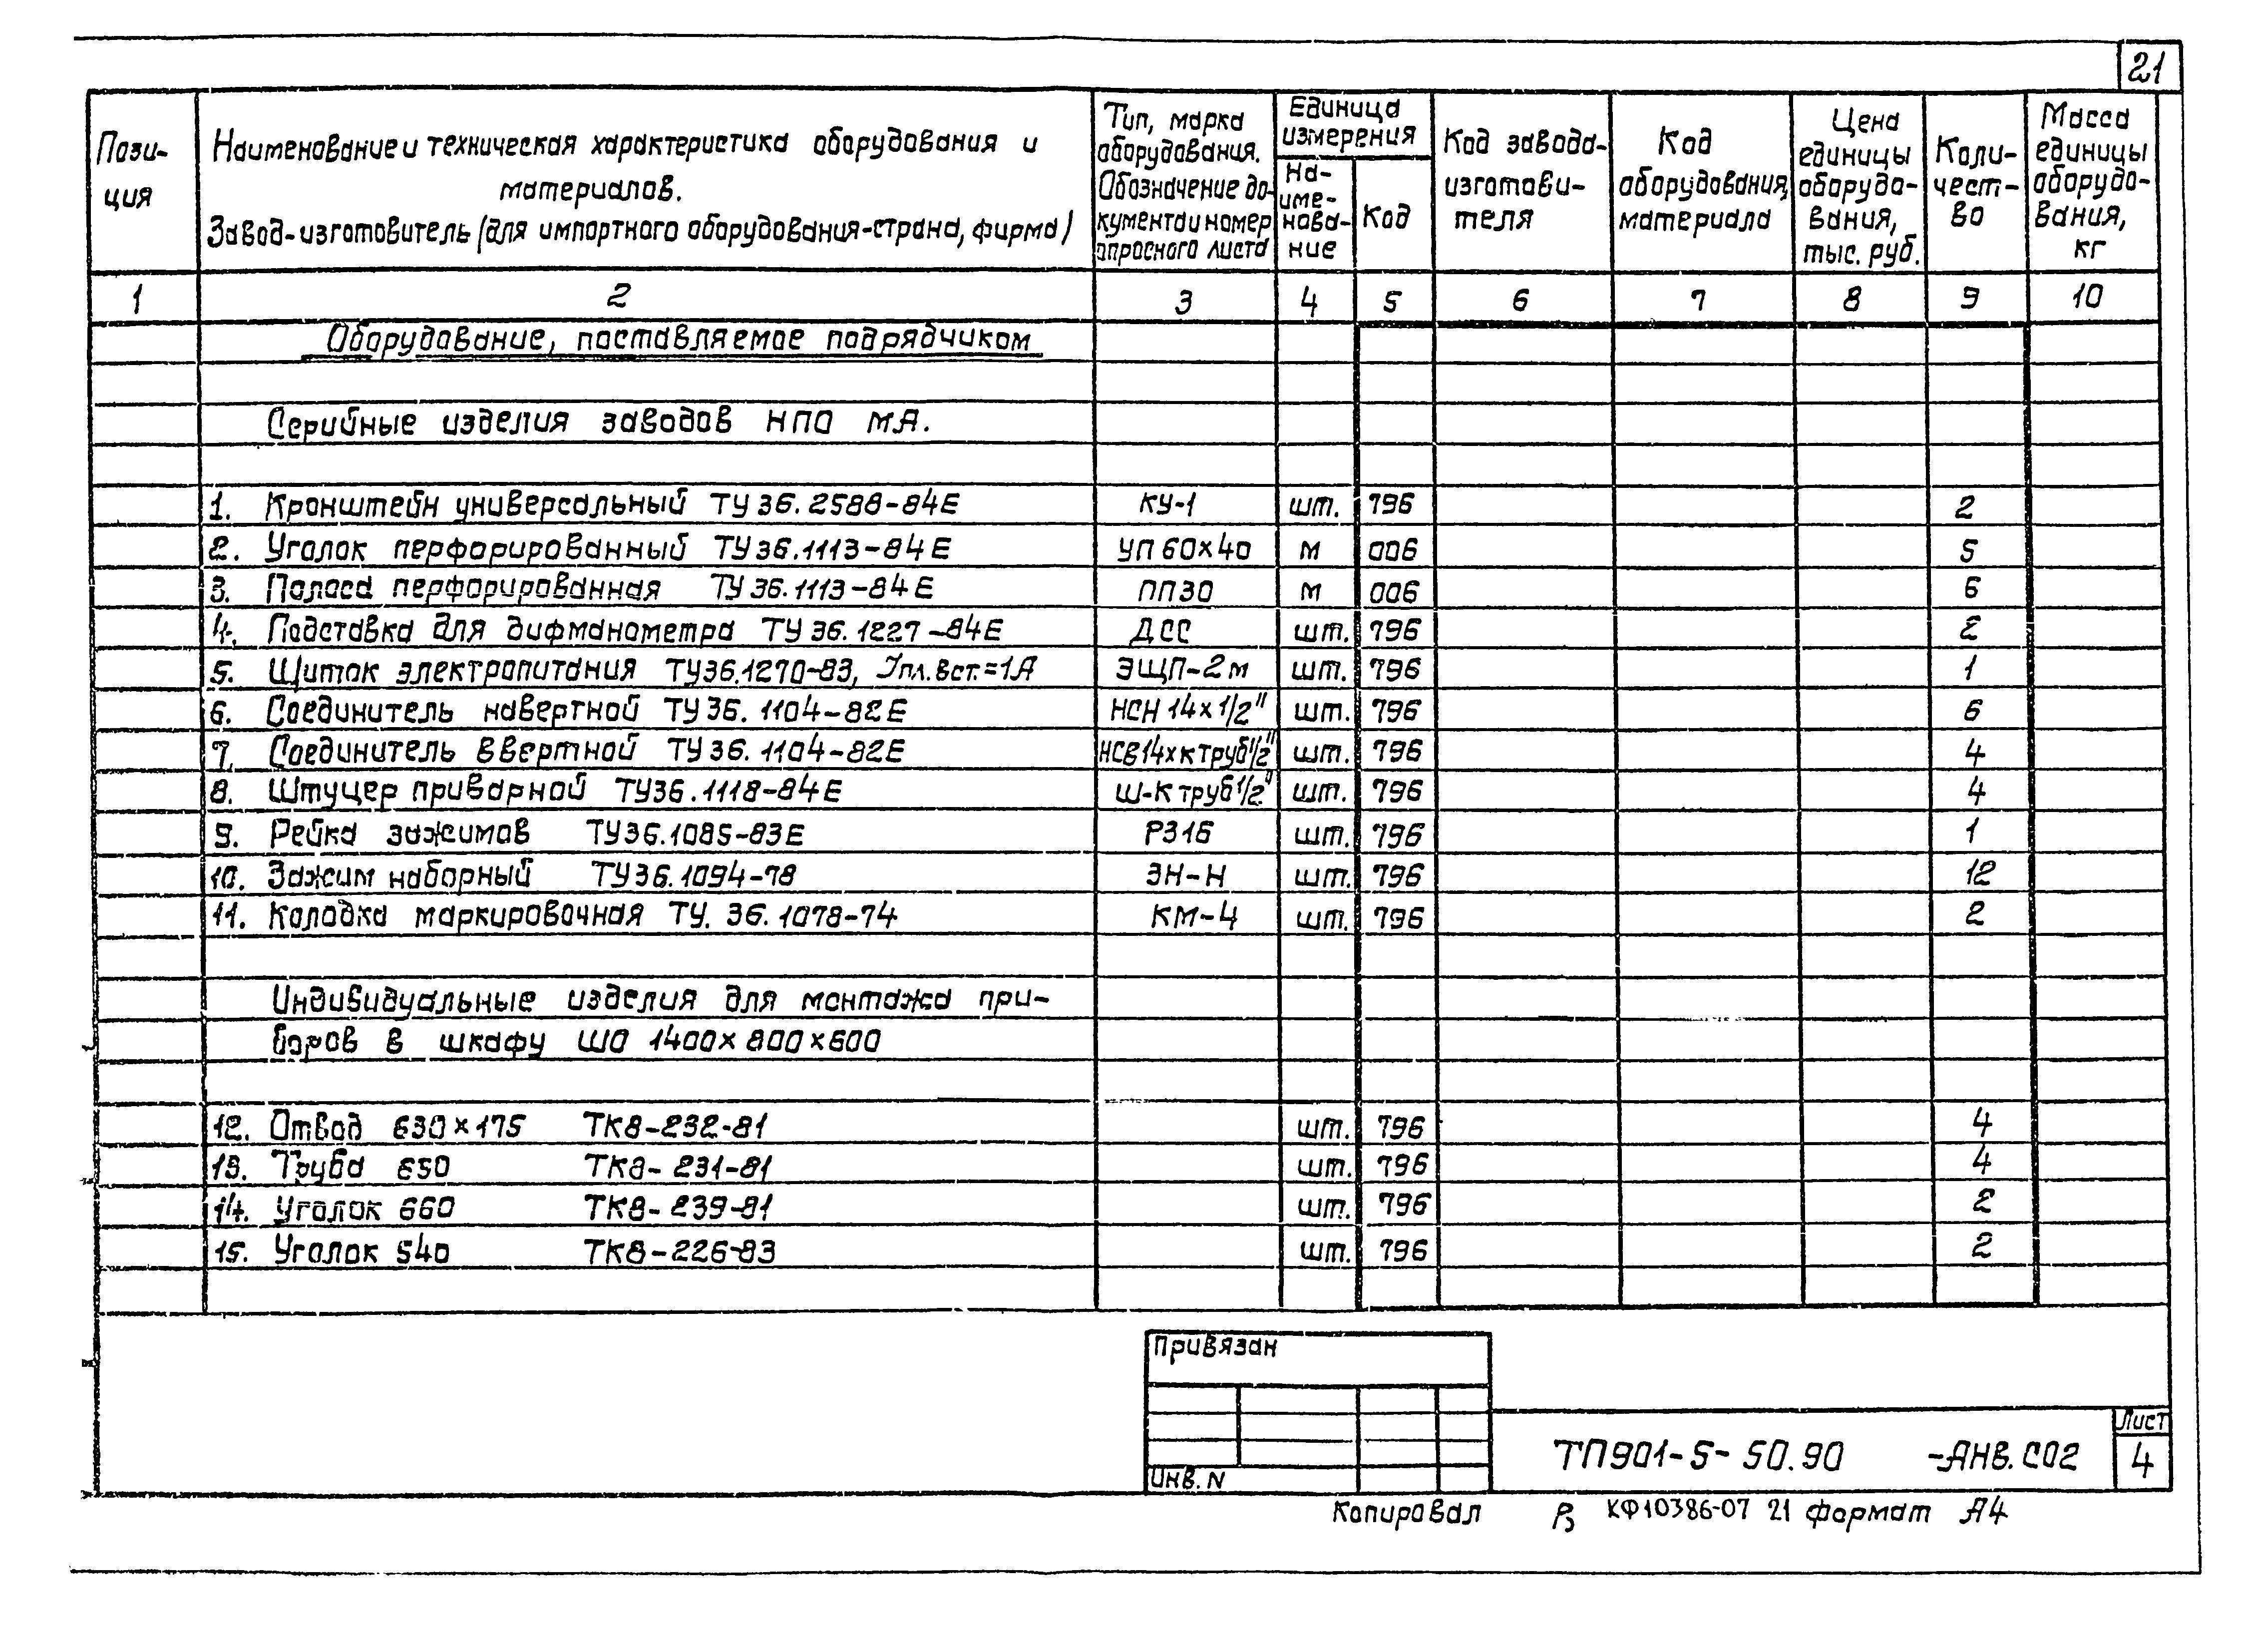 21
Пози-
ция
Наименование и техническая характеристика оборудования и
материалов.
Завод-изготовитель (для импортного оборудования-страна, фирма)
Тип, марка
оборудования.
Обозначение до-
кумента и номер
опросного листа
Единица
измерения
На-
име-
нова-
ние
Код
Код завода-
изготови-
теля
Код
оборудования,
материала
Цена
единицы
оборудо-
вания,
тыс. руб.
Коли-
чест-
во
Масса
единицы
оборудо-
вания,
кг
1 2 3 4 5 6 7 8 9 10
Оборудование, поставляемое подрядчиком
Серийные изделия заводов НПО МА.
1. Кронштейн универсальный ТУ 36.2588-84Е КУ-1 шт. 796 2
2. Уголок перфорированный ТУ 36.1113-84Е УП 60×40 м 006 5
3. Полоса перфорированная ТУ 36.1113-84Е ПП30 м 006 6
4. Подставка для дифманометра ТУ 36.1227-84Е ДСС шт. 796 2
5. Щиток электропитания ТУ36.1270-83, Iпл.вст.=1А ЭЩП-2м шт. 796 1
6. Соединитель навертной ТУ 36.1104-82Е НСН 14×1/2" шт. 796 6
7. Соединитель ввертной ТУ 36.1104-82Е НСВ14×к труб1/2" шт. 796 4
8. Штуцер приварной ТУ36.1118-84Е Ш-К труб 1/2" шт. 796 4
9. Рейка зажимов ТУ36.1085-83Е РЗ16 шт. 796 1
10. Зажим наборный ТУ36.1094-78 ЗН-Н шт. 796 12
11. Колодка маркировочная ТУ. 36.1078-74 КМ-4 шт. 796 2
Индивидуальные изделия для монтажа при-
боров в шкафу ШО 1400×800×600
12. Отвод 630×175 ТК8-232-81 шт. 796 4
13. Труба 650 ТК8-231-81 шт. 796 4
14. Уголок 660 ТК8-239-81 шт. 796 2
15. Уголок 540 ТК8-226-83 шт. 796 2
Привязан
Инв. N
ТП901-5-50.90 -АНВ.СО2
Лист
4
Копировал КФ10386-07 21 формат А4